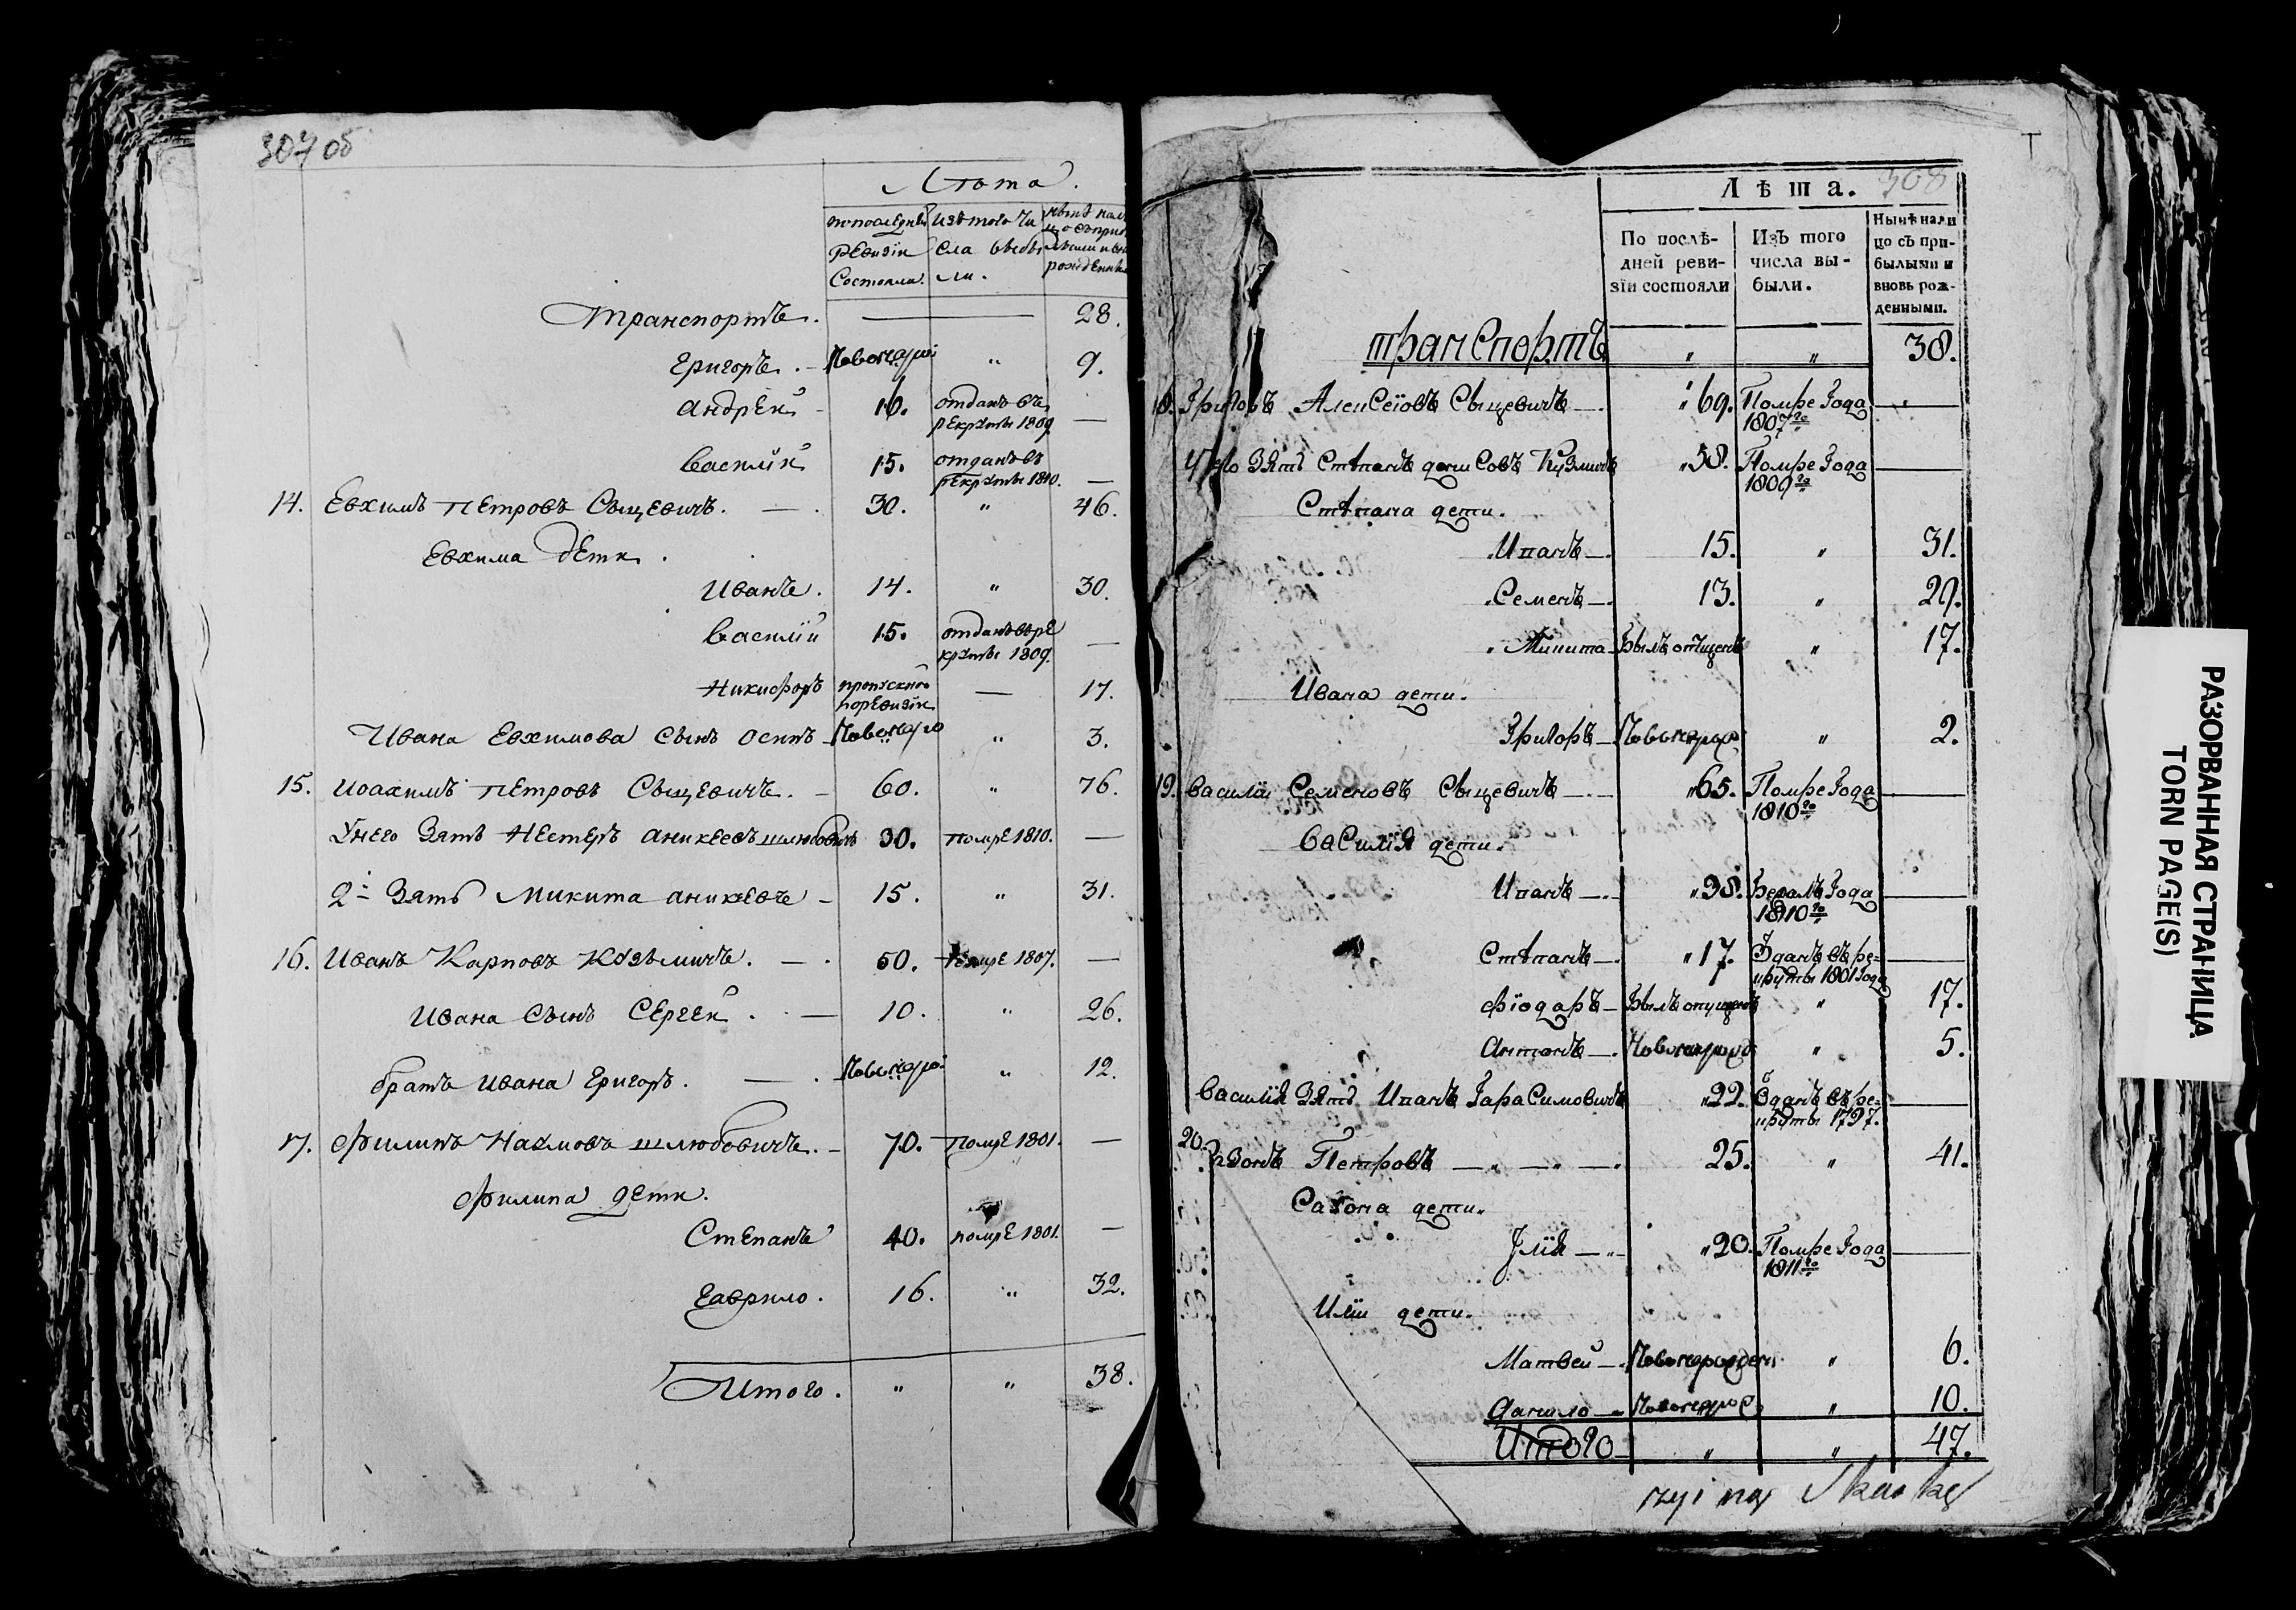 307 об
Лѣта.
По последней Ревизіи Состояли.
Изъ того Числа выбыли.
Транспортъ. 28.
Григоръ. Новонарож 9.
Андрей 16. отданъ въ рекруты 1809
Василий 15. отданъ въ рекруты 1810.
14. Евхимъ Петровъ Сыцевичъ. 30. " 46.
Евхима дети.
Иванъ. 14. " 30.
Василій 15. отданъ въ рекруты 1809.
Никифоръ пропускной по ревизіи — 17.
Ивана Евхимова сынъ Осипъ Новонаро " 3.
15. Иоахимъ Петровъ Сыцевичъ. 60. " 76.
У него зять Нестеръ Аникеевъ Шлюбовичъ 30. помре 1810. —
2й зять Микита Аникевъ 15. " 31.
16. Иванъ Карповъ Кузьмичъ. 50. помре 1807. —
Ивана сынъ Сергей 10. " 26.
братъ Ивана Григоръ. Новонаро " 12.
17. Филипъ Наумовъ Шлюбовичъ. 70. помре 1801. —
Филипа дети.
Степанъ 40. помре 1801. —
Гаврило. 16. " 32.
Итого. " " 38.
308
Лѣта.
По послѣдней ревизіи состояли
Изъ того числа выбыли.
Нынѣ налицо съ прибылыми и вновь рожденными.
транспортъ " " 38.
18. Григоръ Алексіовъ Сыцевичъ 69. Помре Года 1807го
У него зять Стѣпанъ Денисовъ Кузмичъ 58. Помре Года 1809го
Стѣпана дети.
Иванъ 15. " 31.
Семенъ 13. " 29.
Микита Былъ опущенъ " 17.
Ивана дети.
Григоръ Новонарод " 2.
19. Василій Семеновъ Сыцевичъ 65. Помре Года 1810го
Василія дети.
Иванъ 38. Бежалъ Года 1810го
Стѣпанъ 17. Зданъ въ рекруты 1801 Года
Фіодаръ Былъ опущенъ " 17.
Антонъ Новонарод " 5.
Василія зять Иванъ Гарасимовичъ 22. Зданъ въ рекруты 1797.
20. Сазонъ Петровъ 25. " 41.
Сазона дети.
Илія 20. Помре Года 1811го
Иліи дети.
Матвей Новонарожден " 6.
Данило Новонарод " 10.
Итого " " 47.
РАЗОРВАННАЯ СТРАНИЦА
TORN PAGE(S)